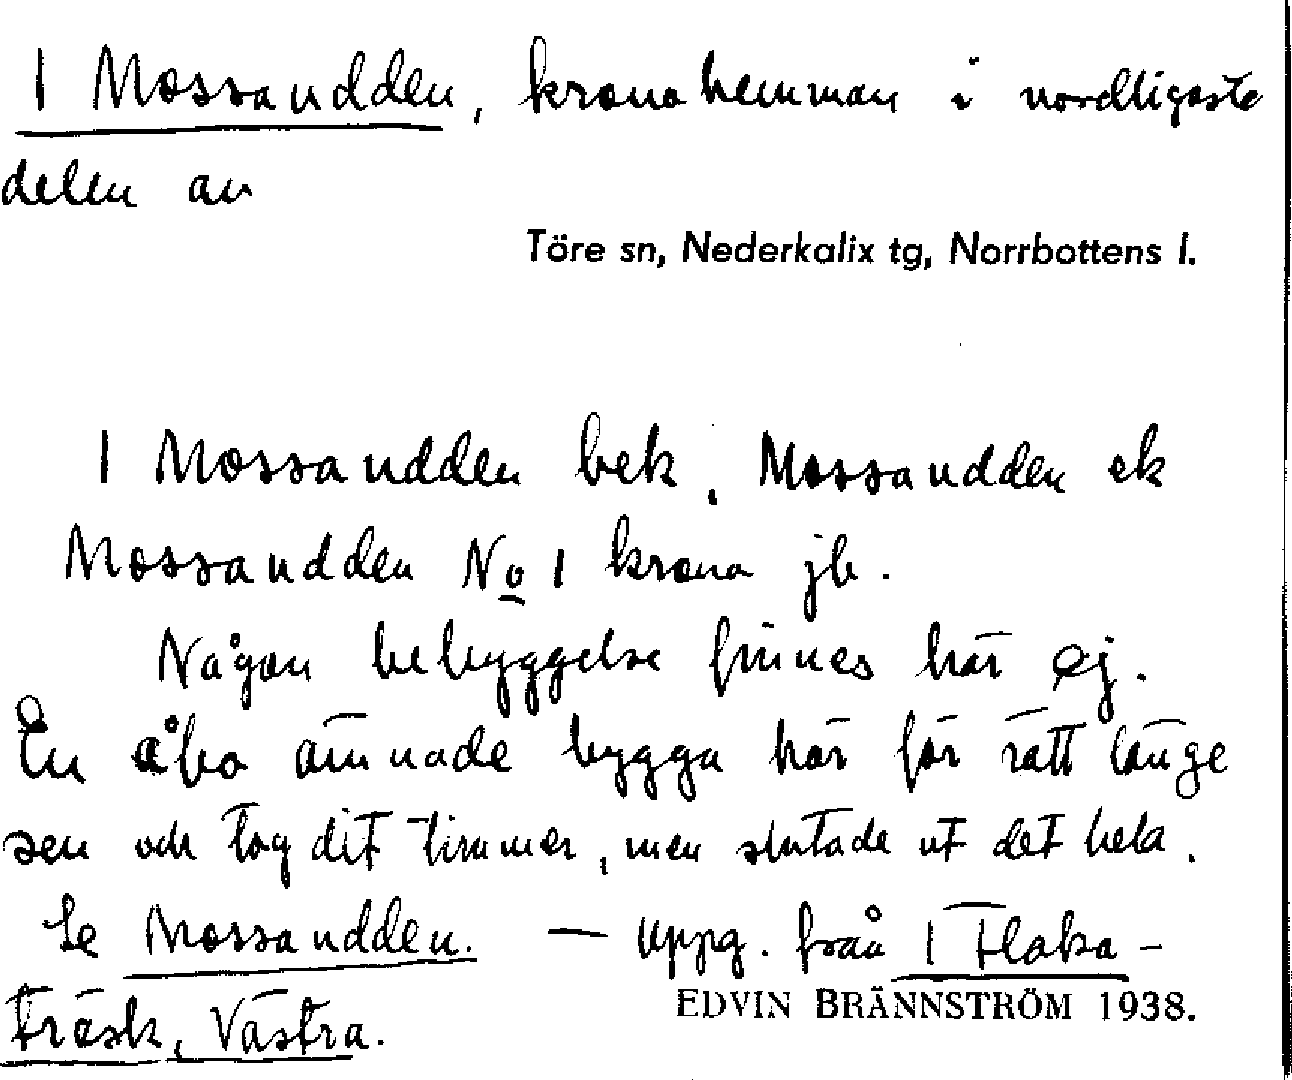 1 Mossaudden, kronohemman i nordligaste
delen av
Töre sn, Nederkalix tg, Norrbottens l.
1 Mossaudden bek, Mossaudden ek
Mossaudden No 1 krono jb.
Någon bebyggelse finnes här ej.
En åbo ämnade bygga här för rätt länge
sen och tog dit timmer, men slutade ut det hela.
Se Mossaudden. — Uppg. från 1 Flaka-
träsk, Västra.
EDVIN BRÄNNSTRÖM 1938.